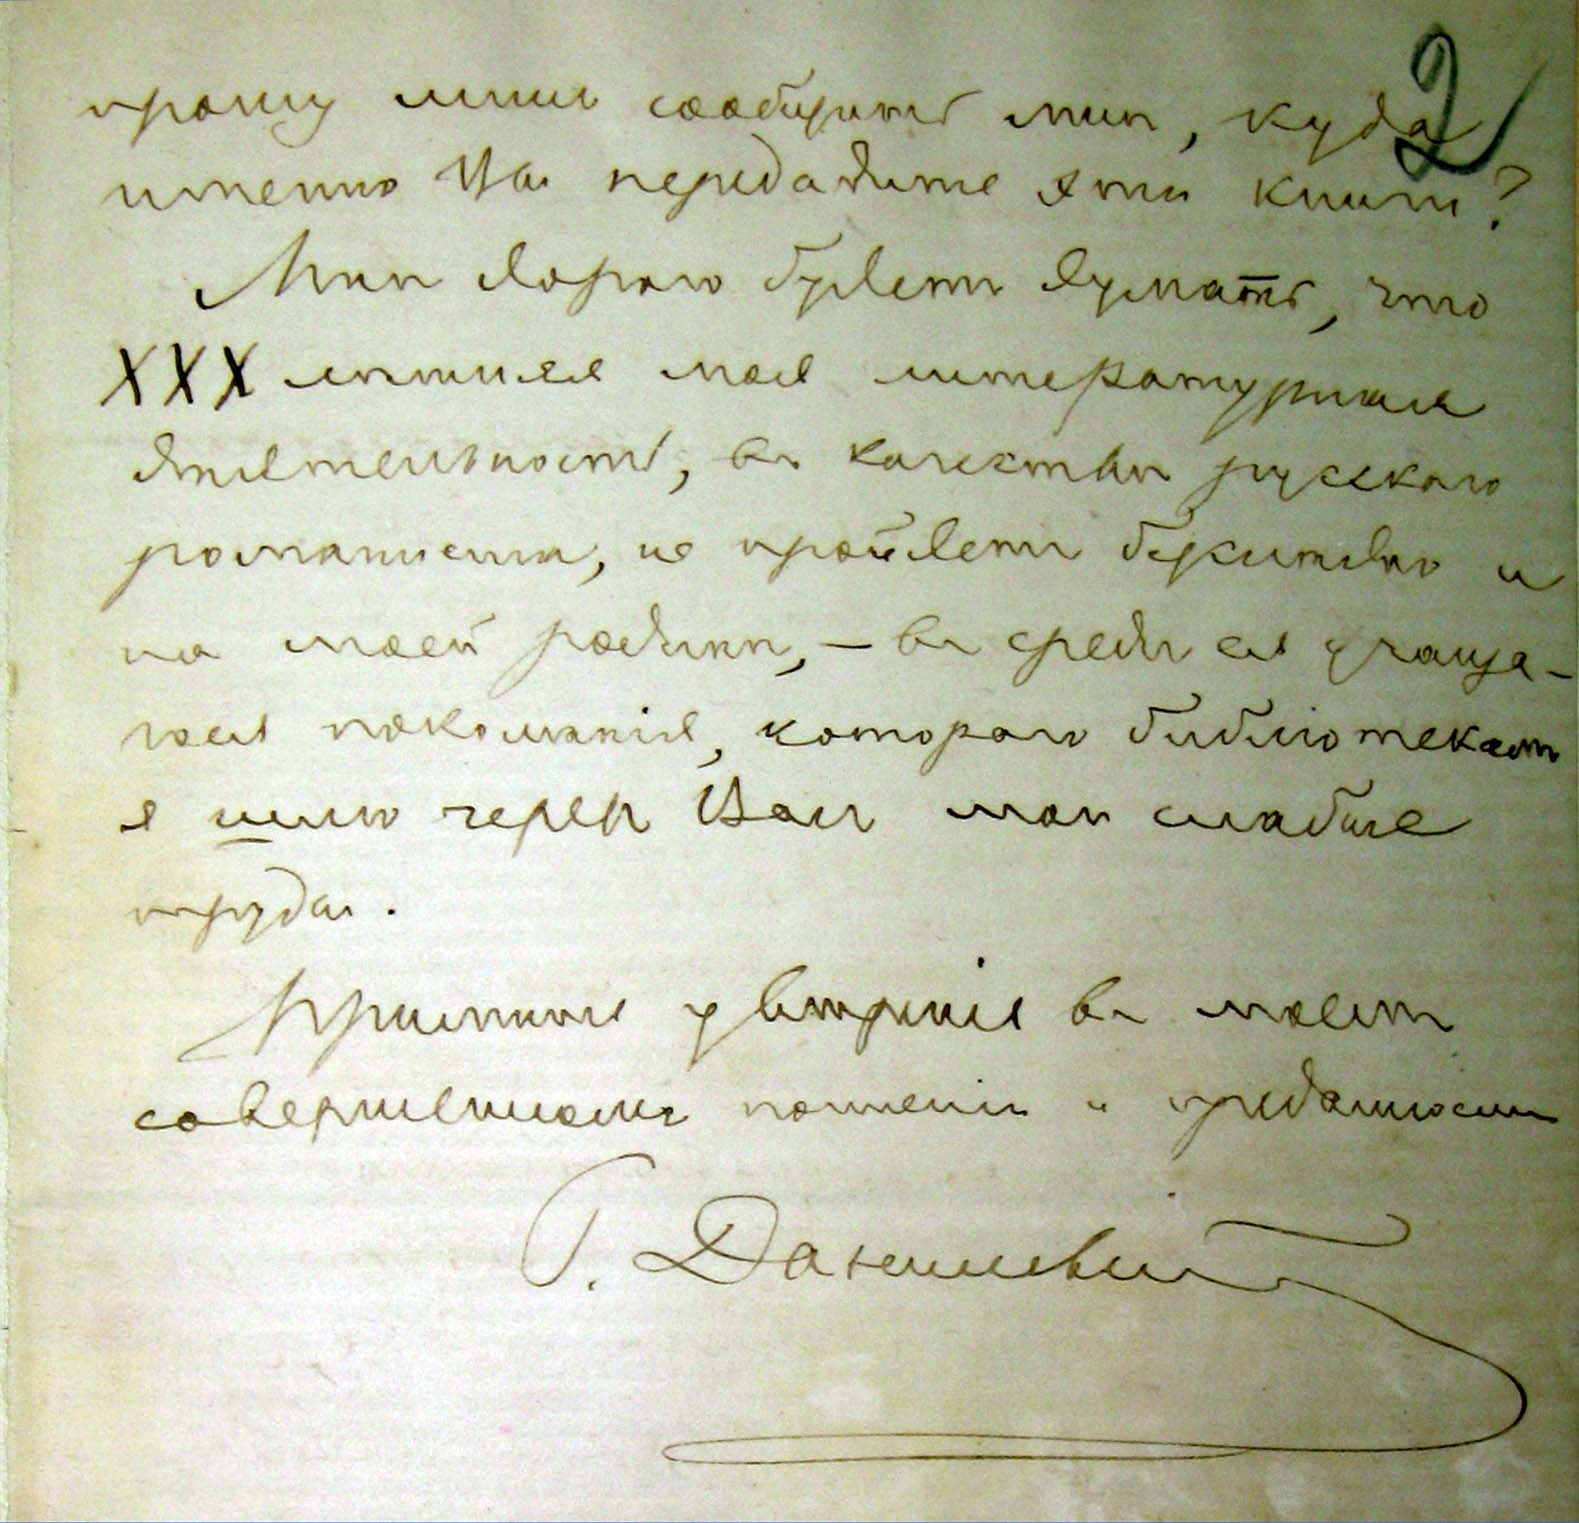 2
прошу лишь сообщить мнѣ, куда
именно Вы передадите эти книги?
Мнѣ дорого будетъ думать, что
XXX лѣтняя моя литературная
дѣятельность, въ качествѣ русскаго
романиста, не пройдетъ безслѣдно и
на моей родинѣ, — въ средѣ ея учаща-
гося поколѣнія, которого библіотекамъ
я шлю черезъ Васъ мои слабые
труды.
Примите увѣреніе въ моемъ
совершенномъ почтеніи и преданности
Г. Данилевскій